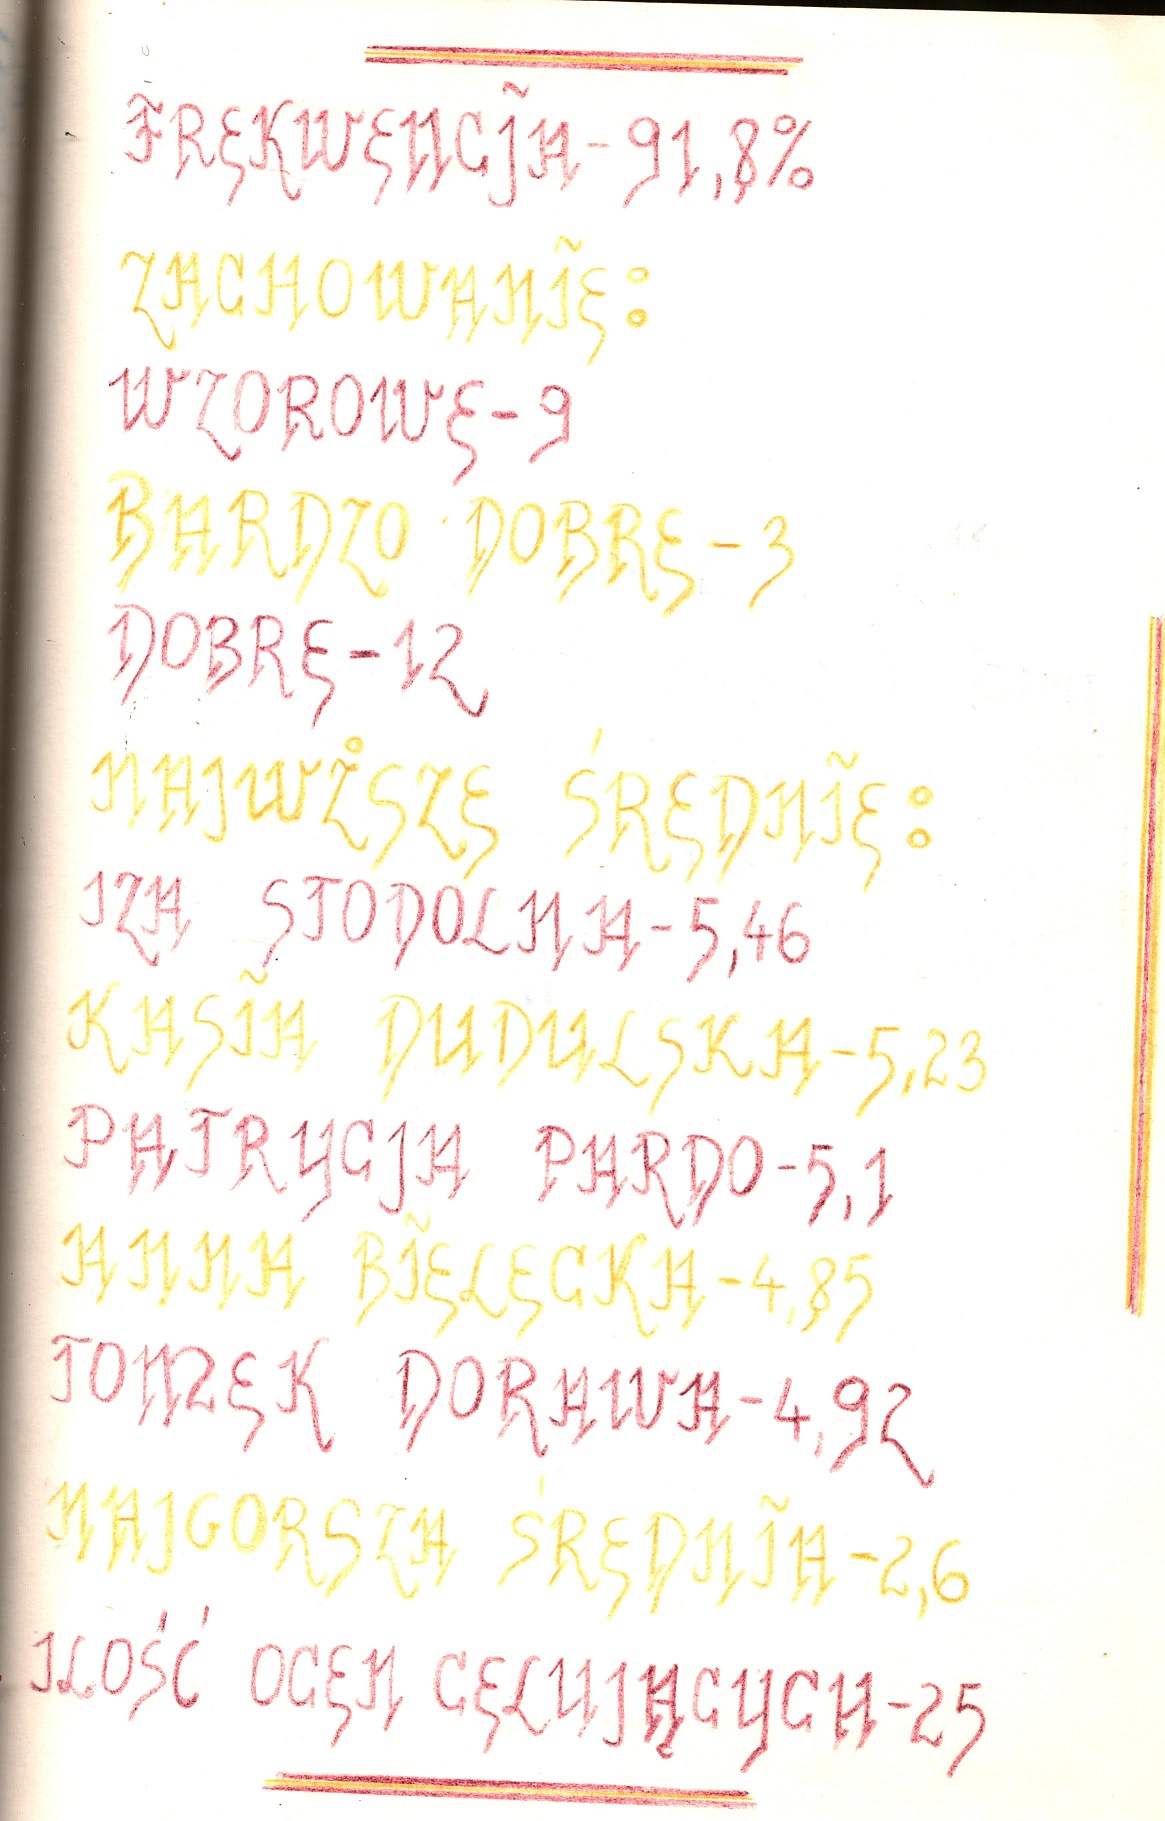 FREKWENCJA-91,8%
ZACHOWANIE:
WZOROWE-9
BARDZO DOBRE-3
DOBRE-12
NAJWŻSZE ŚREDNIE:
IZA STODOLNA-5,46
KASIA DUDULSKA-5,23
PATRYCJA PARDO-5,1
ANNA BIELECKA-4,85
TOMZEK DORAWA-4,92
NAJGORSZA ŚREDNIA-2,6
ILOŚĆ OCEN CELUJĄCYCH-25